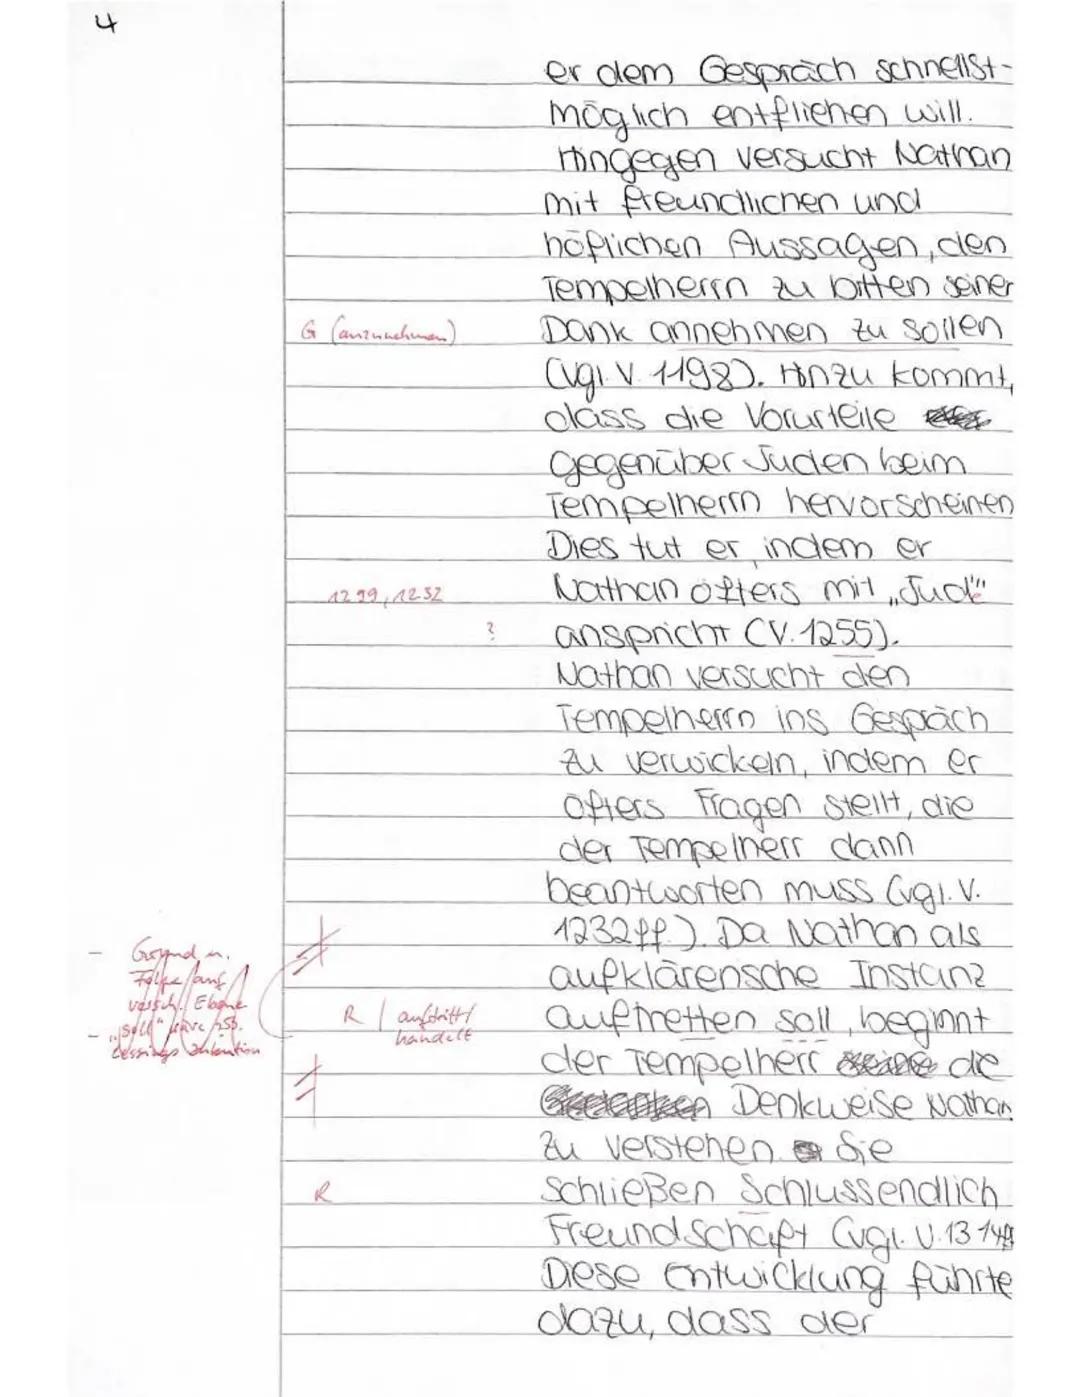 4
er dem Gespräch schnellst-
möglich entfliehen will.
Hingegen versucht Nathan
mit freundlichen und
höflichen Aussagen, den
Tempelherrn zu bitten seiner
G (anzunehmen)
Dank annehmen zu sollen
(vgl. V. 1198). Hinzu kommt,
dass die Vorurteile
gegenüber Juden beim
Tempelherrn hervorscheinen
Dies tut er, indem er
1299, 1232
Nathan öfters mit „Jude"
?
anspricht (V. 1255).
Nathan versucht den
Tempelherrn ins Gespräch
zu verwickeln, indem er
öfters Fragen stellt, die
der Tempelherr dann
beantworten muss (vgl. V.
1232ff.). Da Nathan als
- Grund u.
Folge auf
versch. Ebene
- „soll" wäre
Lessings Intention
aufklärensche Instanz
R | auftritt/
handelt
auftretten soll, beginnt
der Tempelherr die
Denkweise Nathan
zu verstehen. Sie
R
schließen Schlussendlich
Freundschaft (vgl. V. 13
Diese Entwicklung führte
dazu, dass der